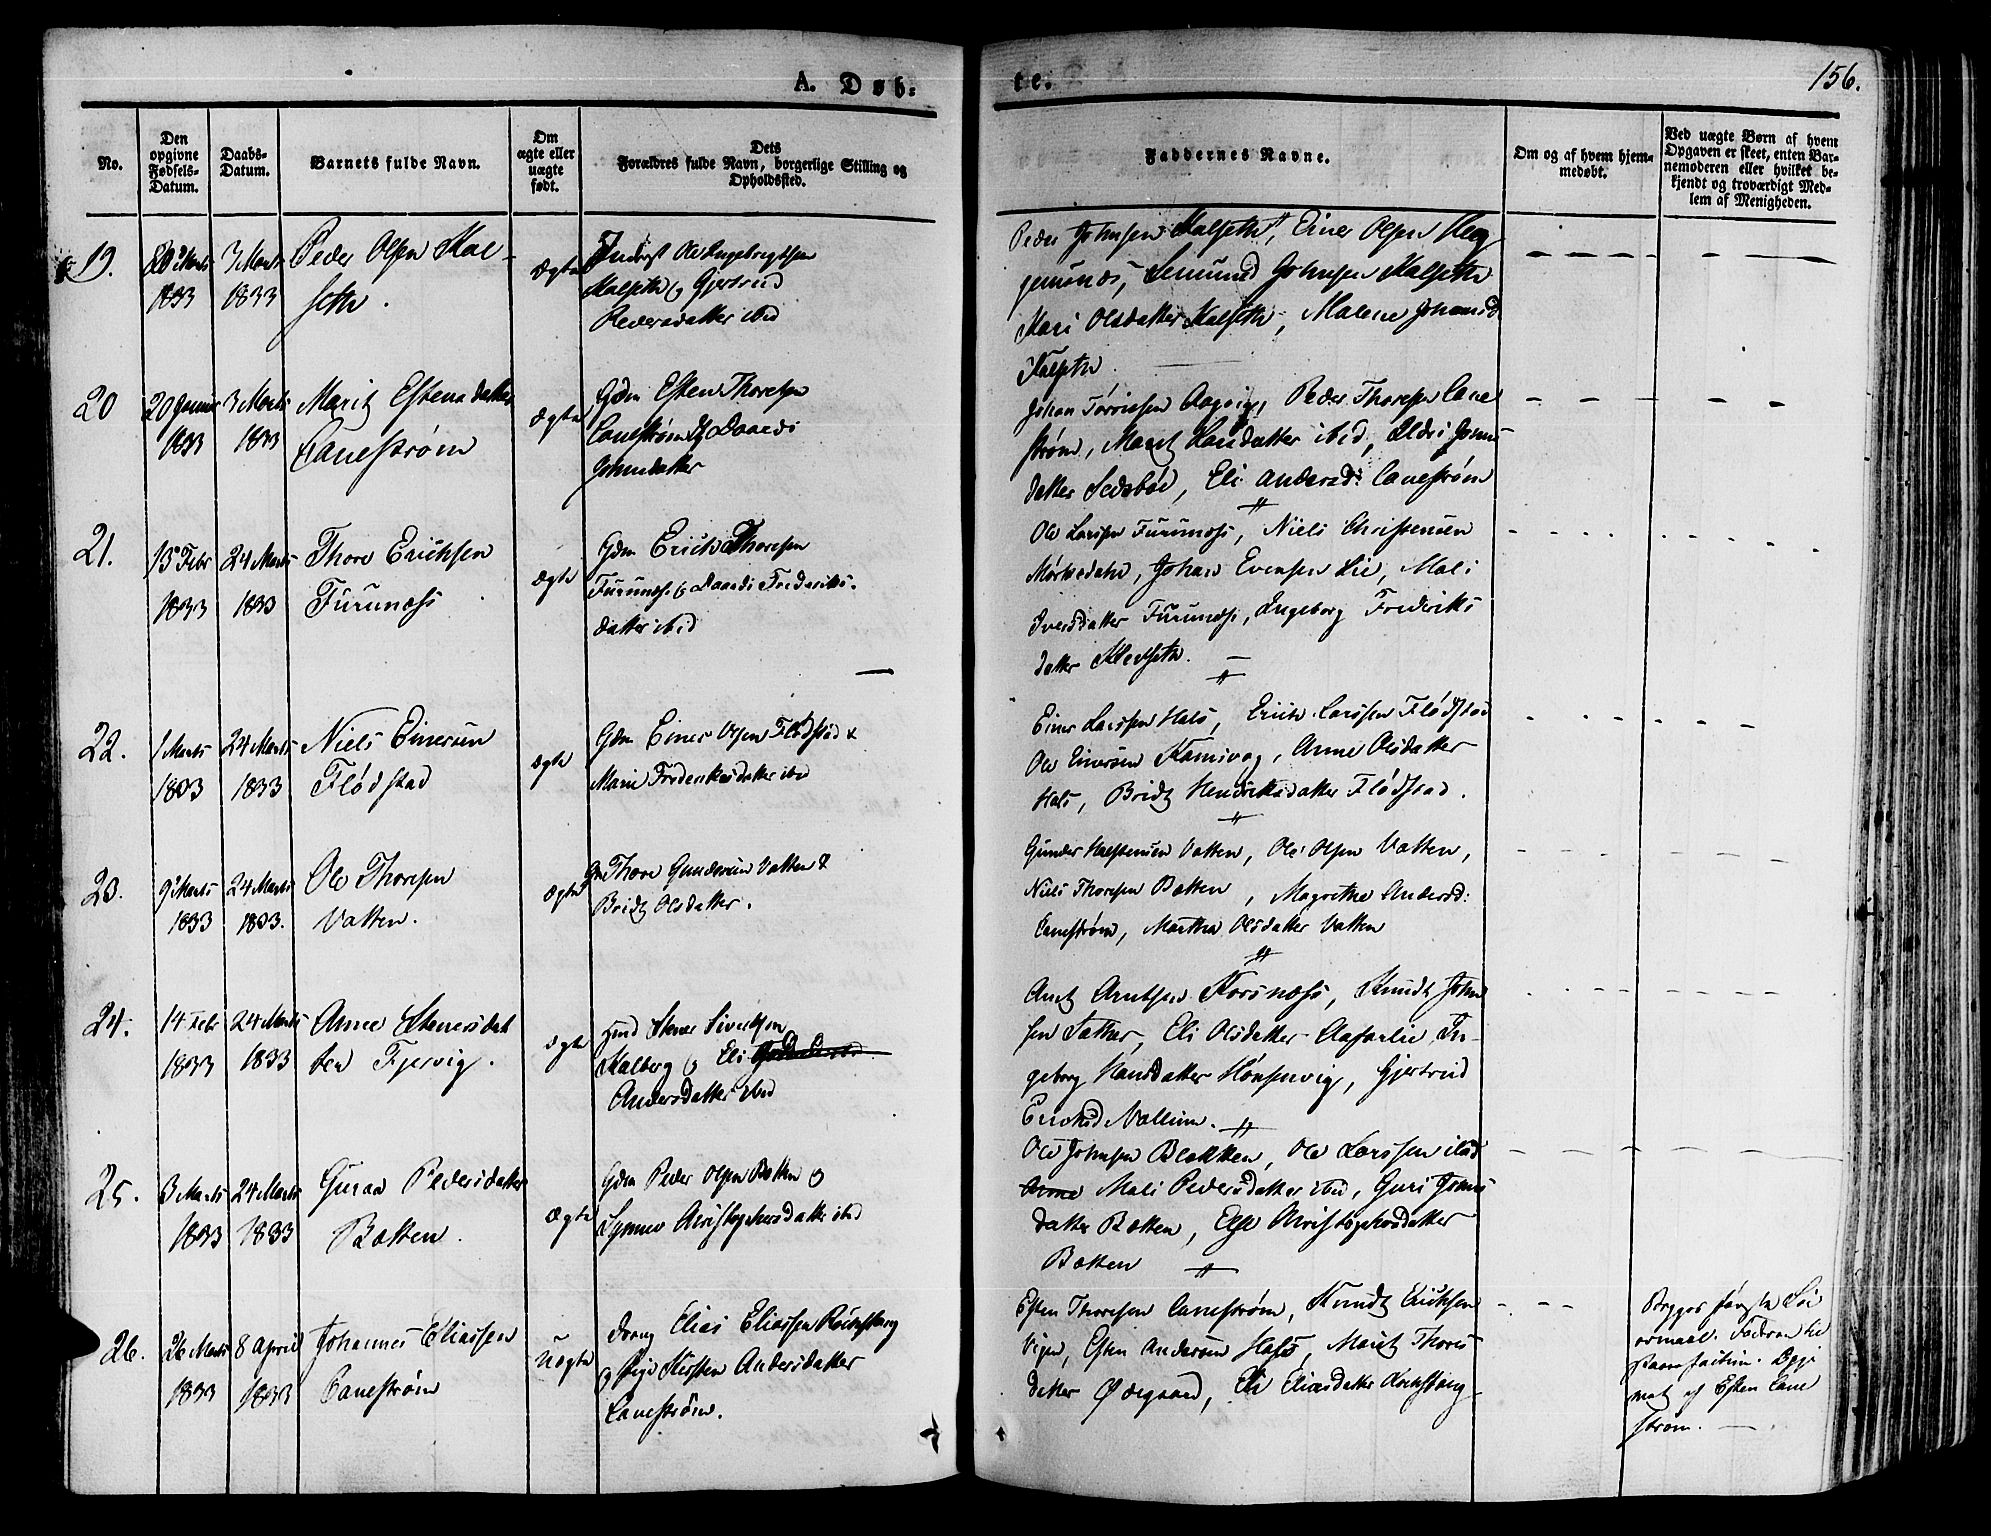 A. Døb-
te.
156.
No.
Den opgivne Fødsels-Datum.
Daabs-Datum.
Barnets fulde Navn.
Om ægte eller uægte født.
Dets Forældres fulde Navn, borgerlige Stilling og Opholdssted.
Faddernes Navne.
Om og af hvem hjem-medøbt.
Ved uægte Børn af hvem Opgaven er skeet, enten Bar-nemoderen eller hvilket be-kjendt og troværdigt Med-lem af Menigheden.
19.
1833
3 Marts
1833
Peder Olsen Kal-
seth.
ægte
Inderst Ole Ingebregtsen
Kalseth og Gjertrud
Pedersdatter ibid
Peder Johnsen Kalseth, Einer Olsen
Semund Johnsen Kalseth
Kari Olsdatter Kalseth, Malene Johansd
Kalseth.
20
20 Januar
1833
3 Marts
1833
Marit Estensdatter
Canestrøm
ægte
Gdm Esten Thoresen
Canestrøm
Johnsdatter
Johan Peder Thoresen Cane
strøm, Marit Larsdatter ibid, Johns
datter Sedsbøe, Eli Andersd: Canestrøm
21.
13 Febr
1833
24 Marts
1833
Thore Erichsen
Furunæss
ægte
Gdm Erich Thoresen
Furunæss og Fredriks-
datter ibid
Ole Larsen Furunæss, Niels Christensen
Mørkedahl, Johan Evensen Lie, Mali
Iversdatter Furunæss, Ingeborg Fredriks
datter
22.
1 Marts
1833
24 Marts
1833
Niels Einersen
Flødstad
ægte
Gdm Einer Olsen Flødstad &
Marie Fredriksdatter ibid
Einer Larssen Hals, Erich Larssen Flødstad
Ole Einersen Ramsvog, Anne Olsdatter
Hals, Bridt Hendriksdatter Flødstad.
23.
9 Marts
1833
24 Marts
1833.
Ole Thoresen
Vatten.
ægte
Thore Gundersen Vatten &
Bridt Olsdatter.
Gunder Halstensen Vatten, Ole Olsen Vatten,
Niels Thoresen Botten, Magrethe Andersd:
Canestrøm, Martha Olsdatter Vatten
24.
14 Febr
1833
24 Marts
1833
Anne Stenersdat
ter Fjervig.
ægte
Hmd Stener Sivertsen
Kalberg og Eli
Andersdatter ibid
Arnt Arntsen Korsnæss, Knudt John
sen Sather, Eli Olsdatter Aafarlie, In-
geborg Hansdatter Hønsvig, Gjertrud
Erichsd Vollum.
25.
3 Marts
1833
24 Marts
1833
Guraa Pedersdatter
Botten.
ægte
Gdm Peder Olsen Botten og
Synnev Christophersdatter ibid
Ole Johnsen Blakken, Ole Larssen ibid
Mali Pedersdatter ibid, Guri Johns
datter Botten, Else Christophersdatter
Botten
26.
26 Marts
1833
8 April
1833
Johannes Eliassen
Canestrøm
uægte
Dreng Elias Eliassen
og Pige Kirsten Andersdatter
Canestrøm.
Esten Thoresen Canestrøm, Knudt Erichsen
Vigen, Esten Andersen Hals, Marit Thores
datter Ødegaard, Eli Eliasdatter
Begges første Lei
ermaal. Faderen
af Esten Cane
strøm.